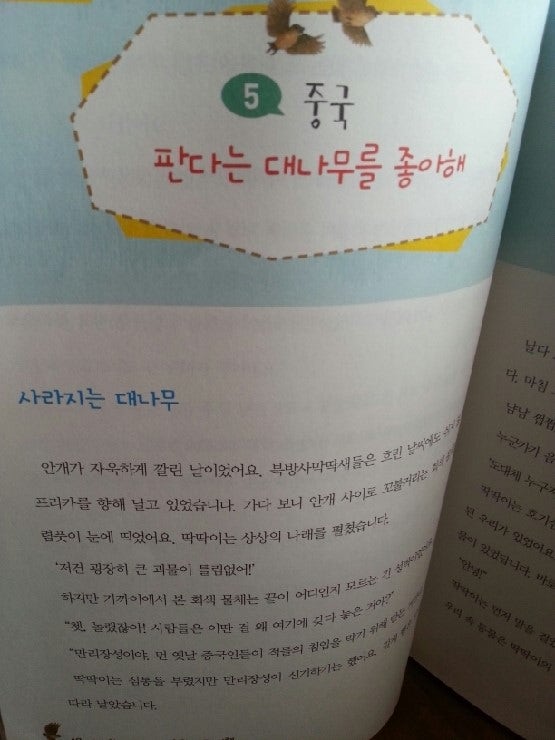 5 중국
판다는 대나무를 좋아해
사라지는 대나무
안개가 자욱하게 깔린 날이었어요. 북방사막딱새들은 흐린 날씨에도
프리카를 향해 날고 있었습니다. 가다 보니 안개 사이로 꼬불거리는
럼풋이 눈에 띄었어요. 딱딱이는 상상의 나래를 펼쳤습니다.
'저건 굉장히 큰 괴물이 틀림없어!'
하지만 가까이에서 본 회색 물체는 끝이 어디인지 모르는 긴
"쳇, 놀랐잖아! 사람들은 이딴 걸 왜 여기에 갖다 놓은 거야?"
"만리장성이야. 먼 옛날 중국인들이 적들의 침입을 막기 위해
딱딱이는 심통을 부렸지만 만리장성이 신기하기는 했어요.
따라 날았습니다.
날다
다. 마침
냠냠 쩝쩝
누군가가
'도대체 누구지
딱딱이는 호기심
된 우리가 있었어요
물이 있었습니다. 바로
"안녕!"
딱딱이는 먼저 말을
우리 속 동물은 딱딱이의